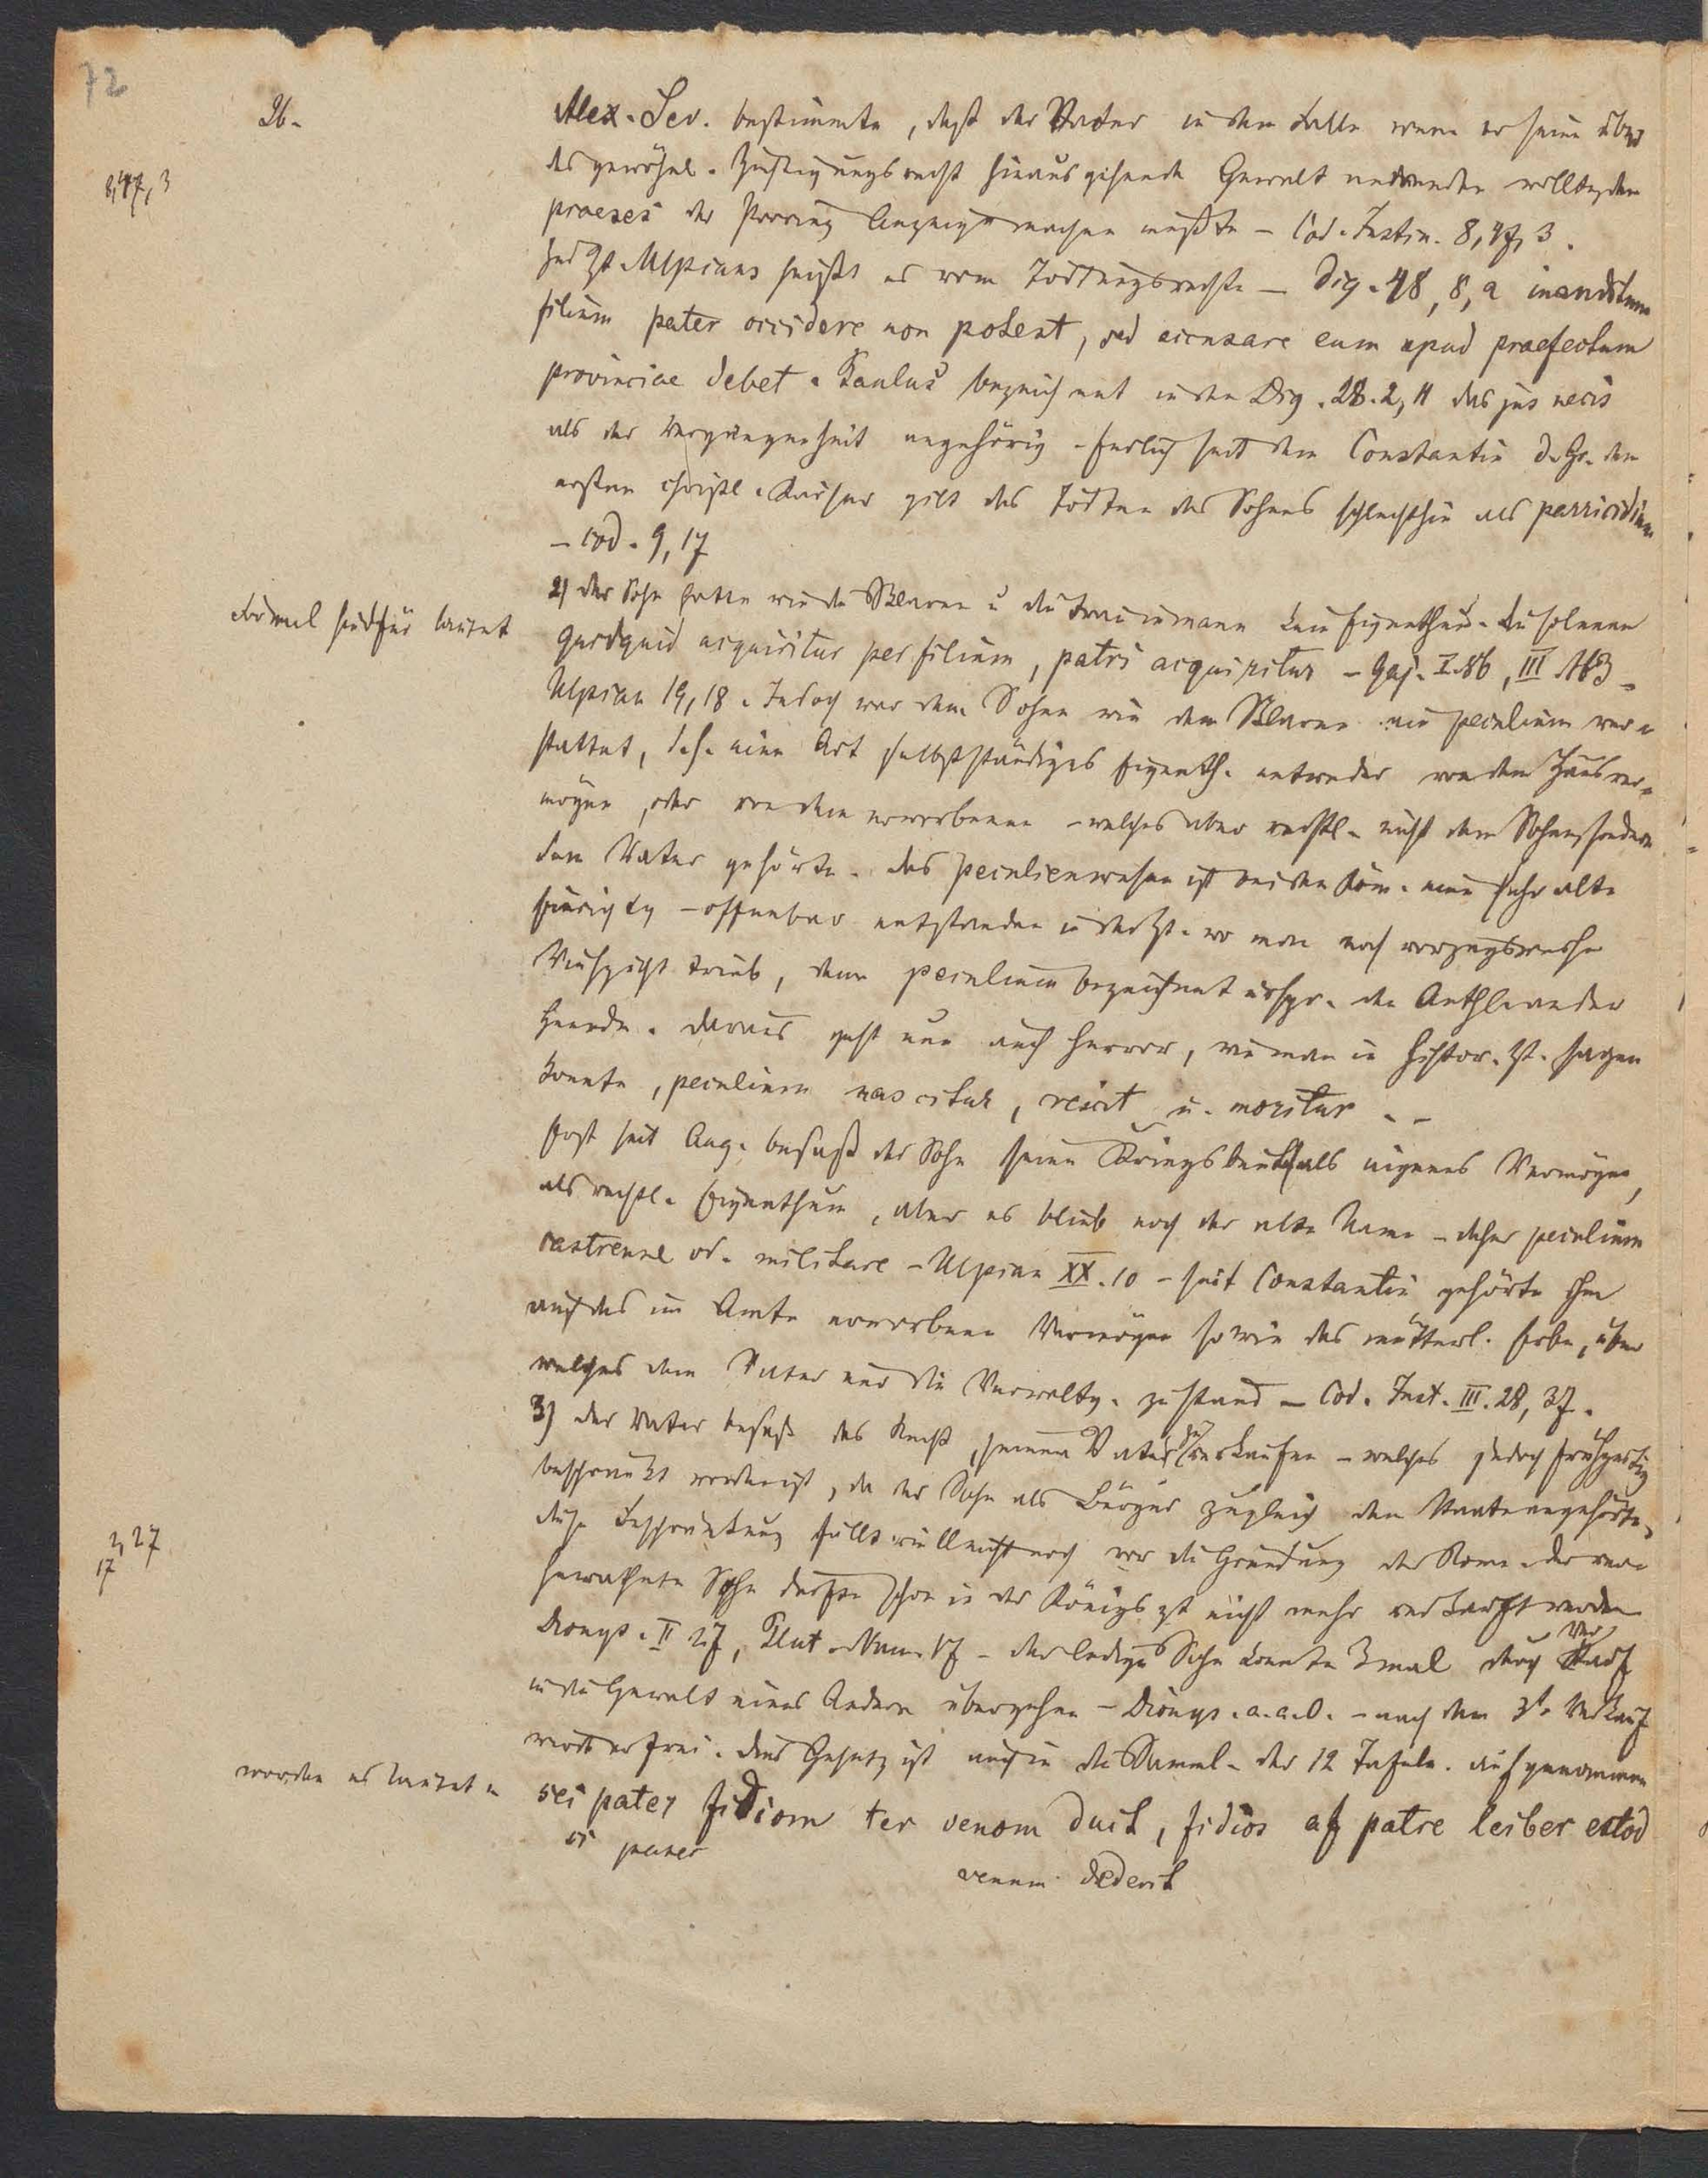 72
26.
Alex. Sev. bestimmte, daß der Vater in dem Falle wenn er seine über
das gewöhnl. Züchtigungsrecht hinausgehende Gewalt anwenden wollte, dem
8,47,3
praeses der Provinz Anzeige machen mußte – Cod. Justin. 8,47,3.
Zur Zt. Ulpians heißt es vom Tödtungsrechte – Dig. 48,8,2 inauditum
filium pater occidere non potest, sed accusare eum apud praefectum
provinciae debet. Paulus bezeichnet in den Dig. 28.2,11 das jus necis
als der Vergangenheit angehörig. Endlich seit dem Constantin d. Gr. dem
ersten christl. Kaiser gilt das Tödten des Sohnes schlechthin als parricidium
– Cod. 9,17
2) der Sohn hatte wie die Sklaven u die Frau in manu kein Eigenthum. Die solenne
Formel hiefür lautet
quidquid acquiritur per filium, patri acquiritur – Gaj. I. 86, III 163 –
Ulpian 19,18. Jedoch war dem Sohne wie dem Sklaven ein peculium ver-
stattet, d. h. eine Art selbstständiges Eigenth. entweder von dem Hausver-
mögen, oder von dem erworbenen – welches aber rechtl. nicht dem Sohne, sondern
dem Vater gehörte. das Peculienwesen ist bei den Röm. eine sehr alte
– offenbar entstanden in der Zt. wo man noch vorzugsweise
Viehzucht trieb, denn peculium bezeichnet urspr. den Antheil an der
Heerde. daraus geht nun auch hervor, wie man in histor. Zt. sagen
konnte, peculium nascitur, crescit u. moritur. –
Erst seit Aug. besaß der Sohn seine Kriegsbeute als eigenes Vermögen,
als rechtl. Eigenthum, aber es blieb noch der alte Name – daher peculium
castrense od. militare – Ulpian XX. 10 – seit Constantin gehörte ihm
auch das im Amte erworbene Vermögen sowie das mütterl. Erbe, über
welches dem Vater nur die Verwaltg. zustand – Cod. Just. III. 28, 37.
3) der Vater besaß das Recht, seinen Vater zu verkaufen – welches jedoch frühzeitig
beschränkt worden ist, da der Sohn als Bürger zugleich dem Staate angehörte,
2,27
17
diese Beschränkung fällt vielleicht noch vor die Gründung der Rom. der ver-
heirathete Sohn durfte schon in der Königszt nicht mehr verkauft werden
Dionys. II 27, Plut. Num. 17 – der ledige Sohn konnte 3mal durch Verkauf
in die Gewalt eines Andern übergehen – Dionys. a. a. O. – nach dem 3t. Verkauf
ward er frei. dies Gesetz ist auch in die Samml. der 12 Tafeln. aufgenommen
worden es lautet –
sei pater fidiom ter venom duit, fidios af patre leiber estod
si pater
venum dederit